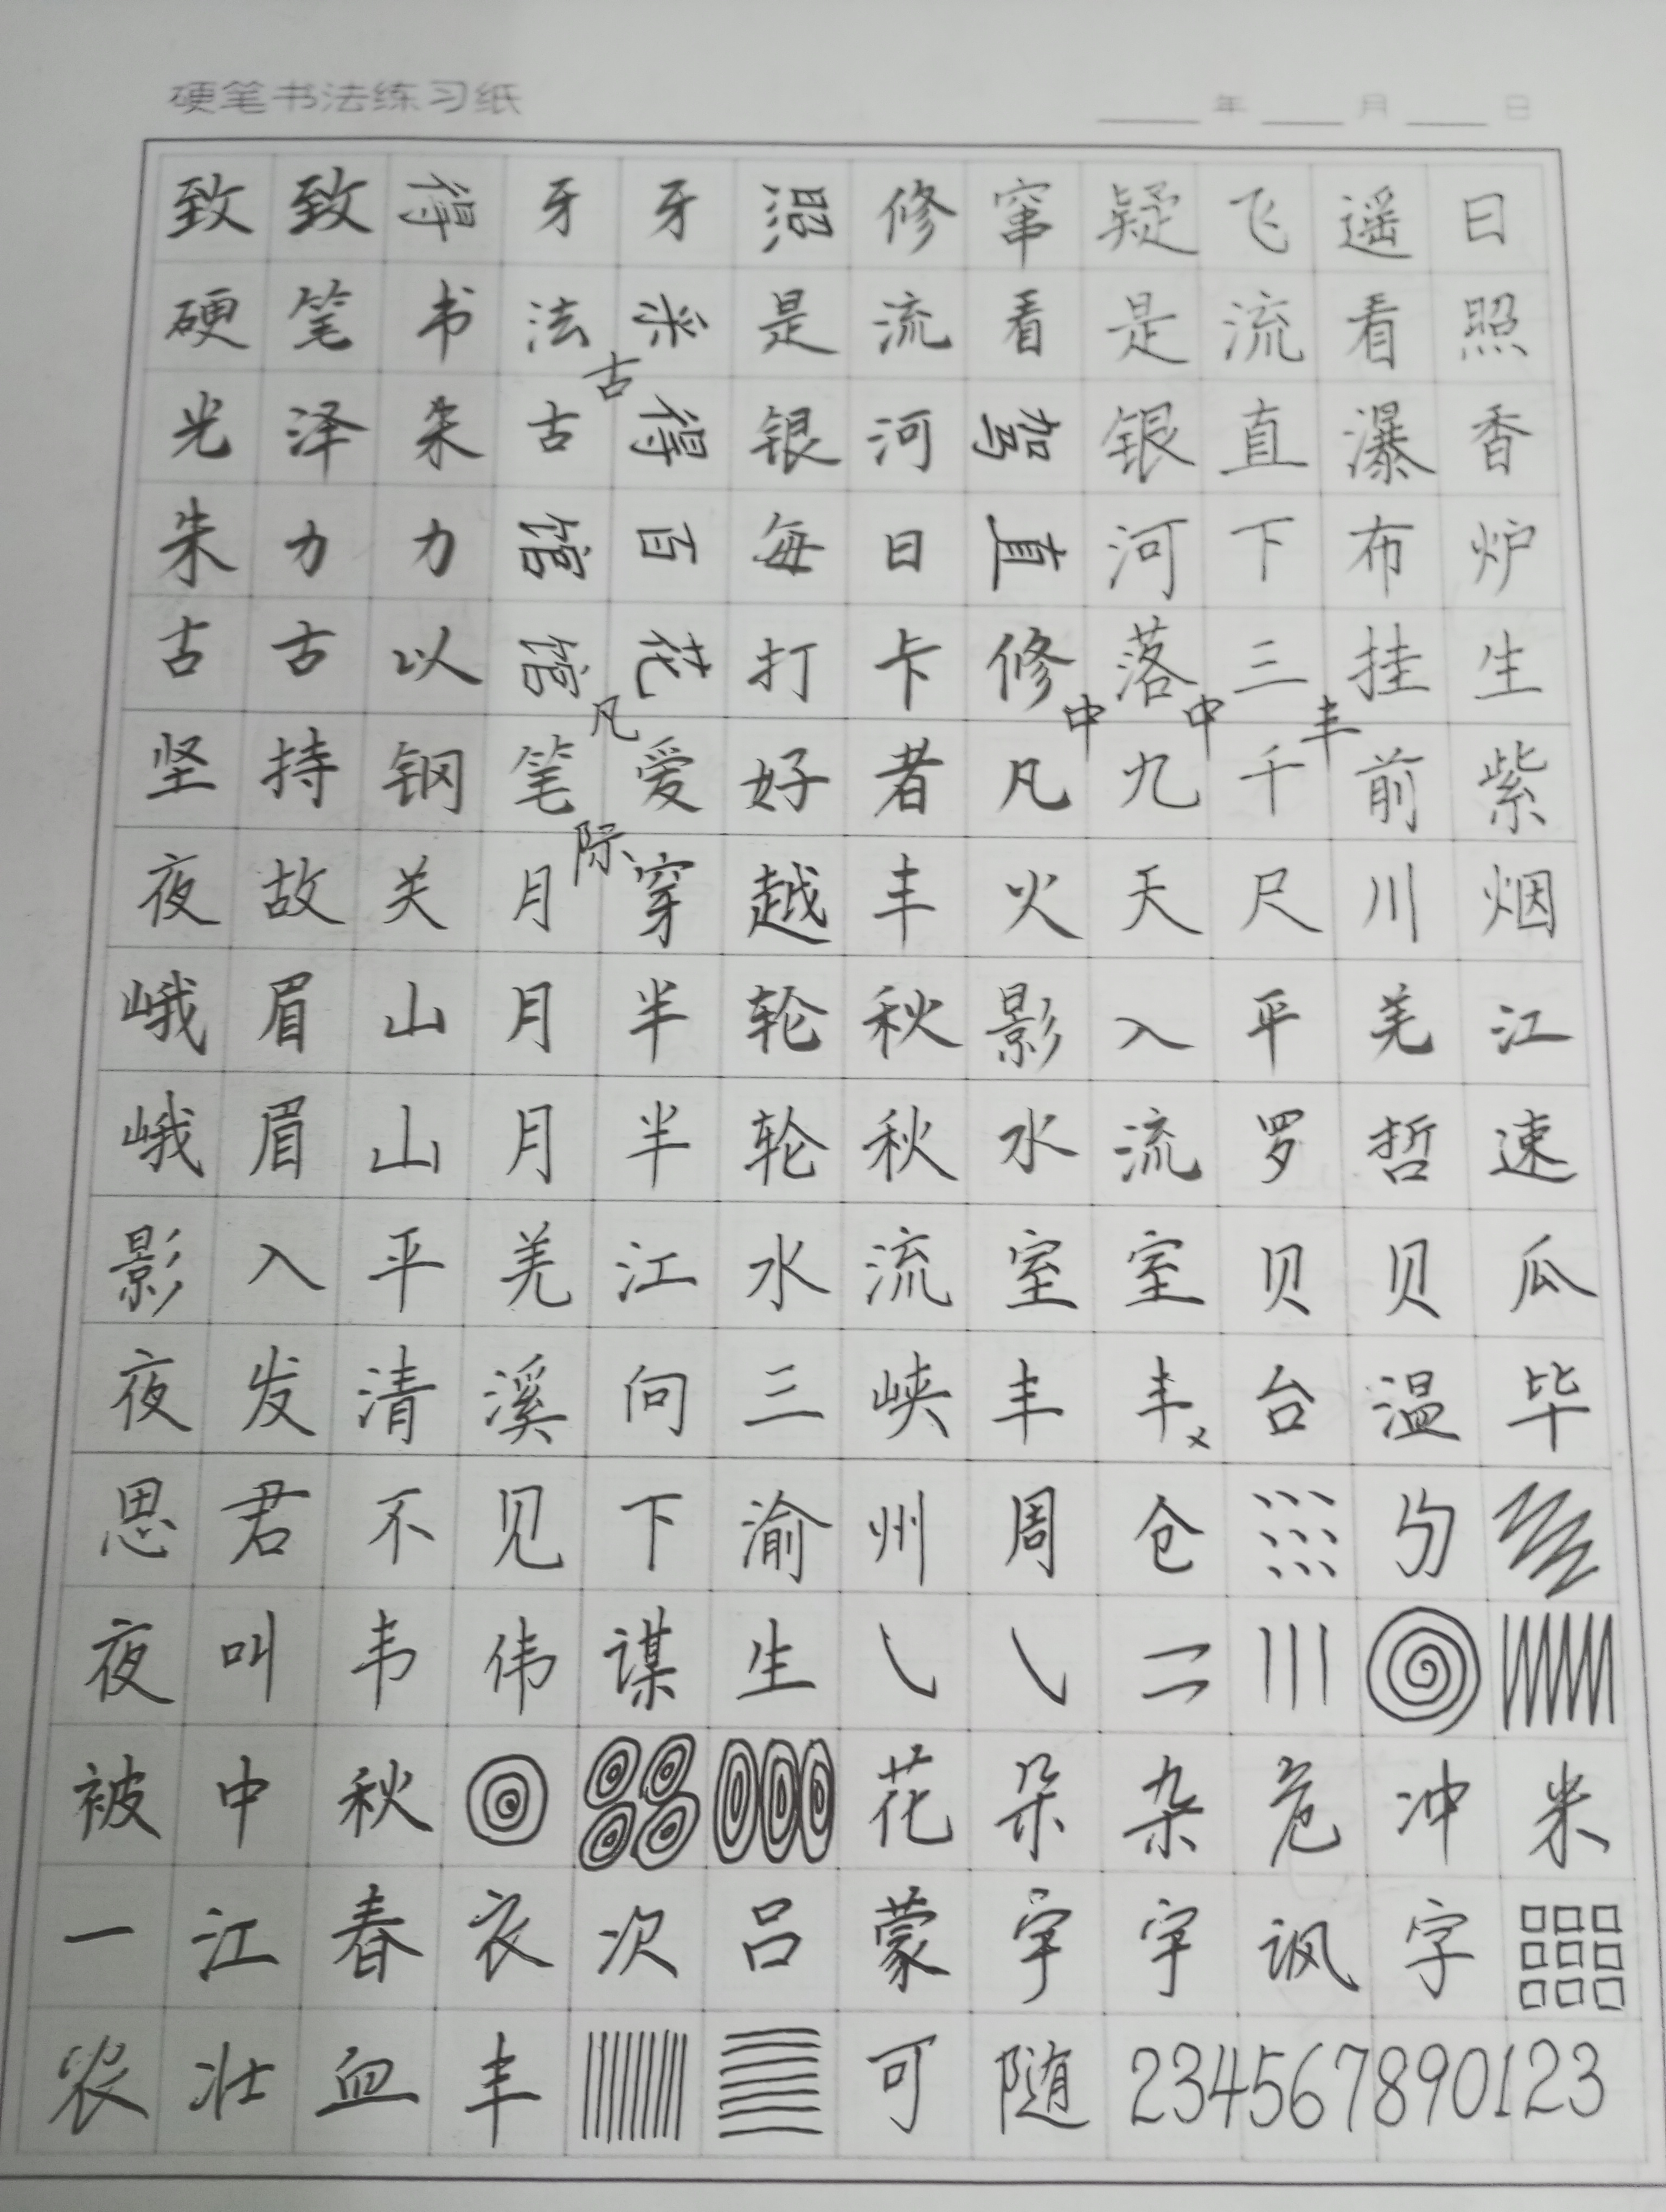 硬笔书法练习纸
年 月 日
致致得牙牙照修窜疑飞遥日
硬笔书法采是流看是流看照
古
光泽朱古得银河驾银直瀑香
朱力力馆百每日直河下布炉
古古以馆花打卡修落三挂生
凡中中丰
坚持钢笔爱好者凡九千前紫
际
夜故关月穿越丰火天尺川烟
峨眉山月半轮秋影入平羌江
峨眉山月半轮秋水流罗哲速
影入平羌江水流室室贝贝瓜
夜发清溪向三峡丰丰台温毕
思君不见下渝州周仓
夜叫韦伟谋生
被中秋花朵杂危冲米
一江春衣次吕蒙宇宇讽字
农壮血丰可随234567890123